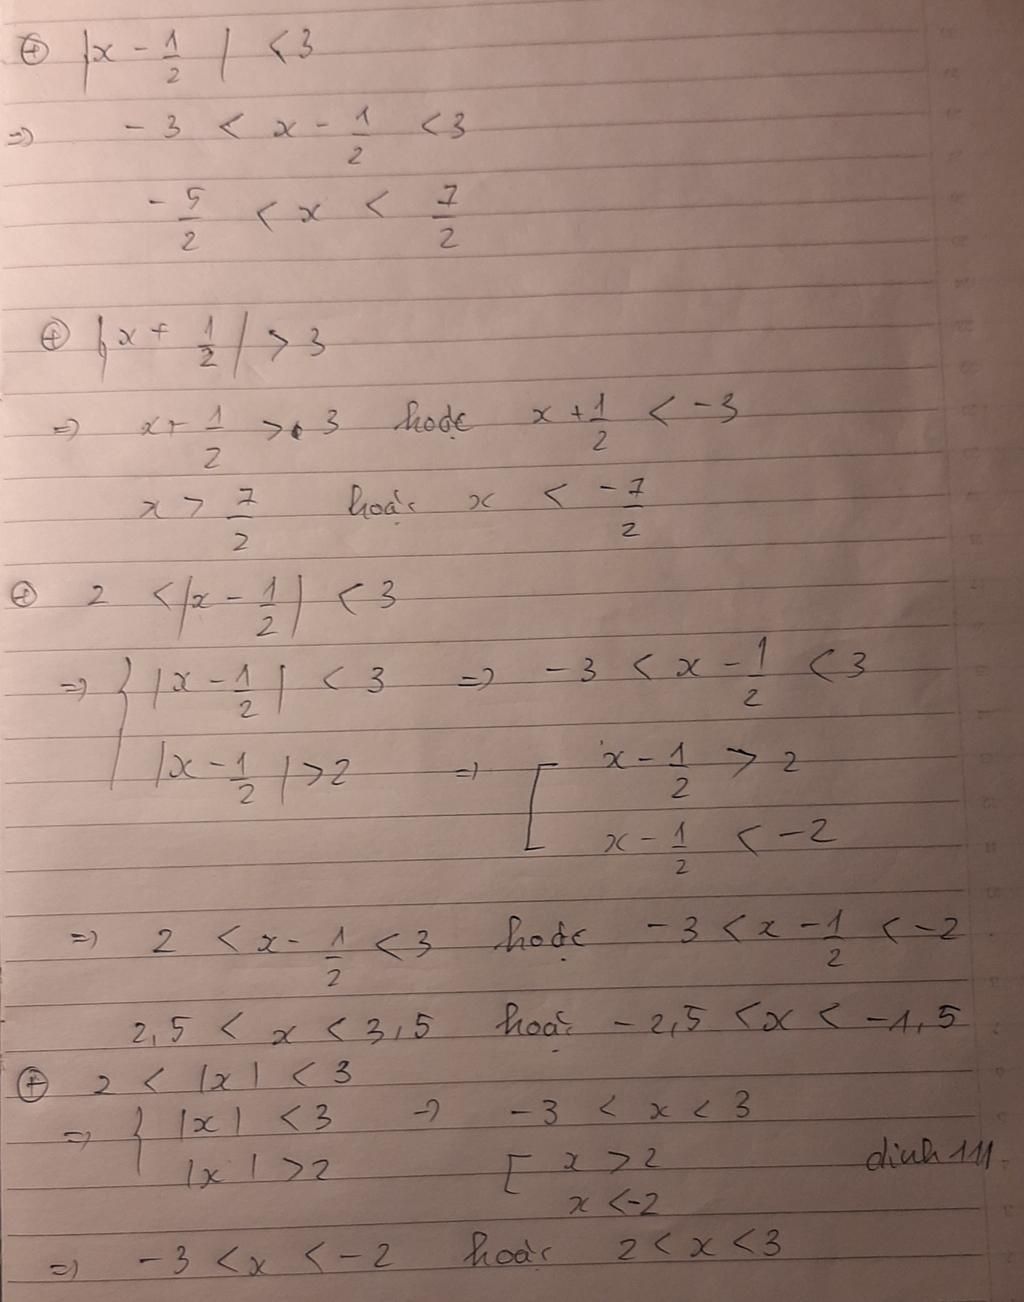 ⊕ |x - 1/2| < 3
=> -3 < x - 1/2 < 3
-5/2 < x < 7/2
⊕ |x + 1/2| > 3
=> x + 1/2 > 3 hoặc x + 1/2 < -3
x > 7/2 hoặc x < -7/2
⊕ 2 < |x - 1/2| < 3
=> { |x - 1/2| < 3 => -3 < x - 1/2 < 3
|x - 1/2| > 2 => [ x - 1/2 > 2
x - 1/2 < -2
=> 2 < x - 1/2 < 3 hoặc -3 < x - 1/2 < -2
2,5 < x < 3,5 hoặc -2,5 < x < -1,5
⊕ 2 < |x| < 3
=> { |x| < 3 => -3 < x < 3
|x| > 2 [ x > 2 dinh 111
x < -2
=> -3 < x < -2 hoặc 2 < x < 3